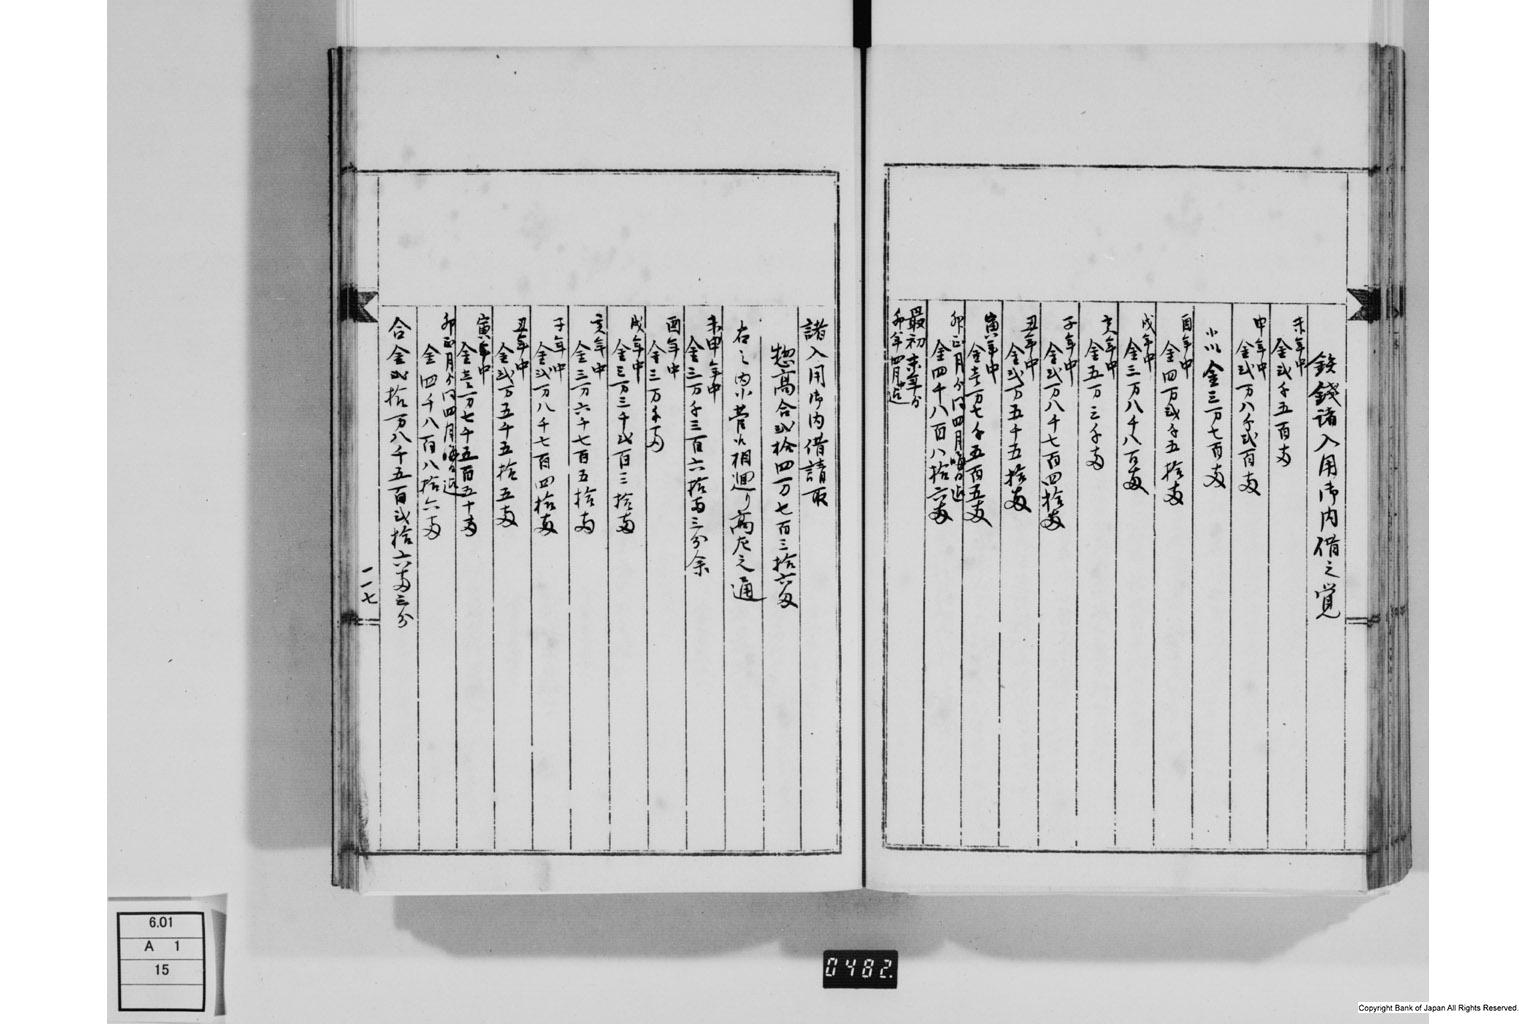 鉄銭諸入用御内借之覚
未年中
金弐千五百両
申年中
金弐万八千弐百両
小以金三万七百両
酉年中
金四万弐千五拾両
戌年中
金三万八千八百両
亥年中
金五万三千両
子年中
金弐万八千七百四拾両
丑年中
金弐万五千五拾両
寅年中
金壱万七千五百五両
卯正月ゟ同四月晦日迄
金四千八百八拾六両
最初未年ゟ
卯年四月迄
諸入用御内借請取
惣高合弐拾四万七百三拾六両
右之内小菅ゟ相廻り高左之通
未申年中
金三万千三百六拾両三分余
酉年中
金三万千両
戌年中
金三万三千弐百三拾両
亥年中
金三万六千七百五拾両
子年中
金弐万八千七百四拾両
丑年中
金弐万五千五拾五両
寅年中
金壱万七千五百五十両
卯正月ゟ同四月晦日迄
金四千八百八拾六両
合金弐拾万八千五百弐拾六両三分
一一七
6.01
A 1
15
0482.
Copyright Bank of Japan All Rights Reserved.